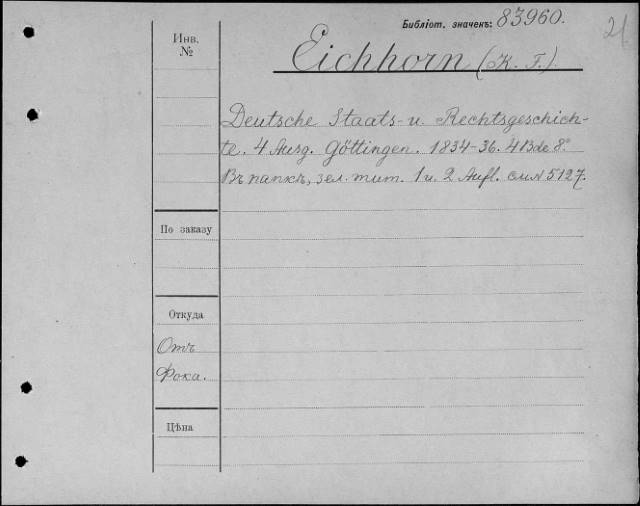 Библіот. значекъ: 83960.
21
Инв.
№
Eichhorn (K. F.)
Deutsche Staats- u. Rechtsgeschich-
te. 4 Ausg. Göttingen. 1834-36. 4 Bde 8°
Въ папкѣ, зел. тит. 1 u. 2 Aufl. см № 5127.
По заказу
Откуда
Отъ
Фока.
Цѣна